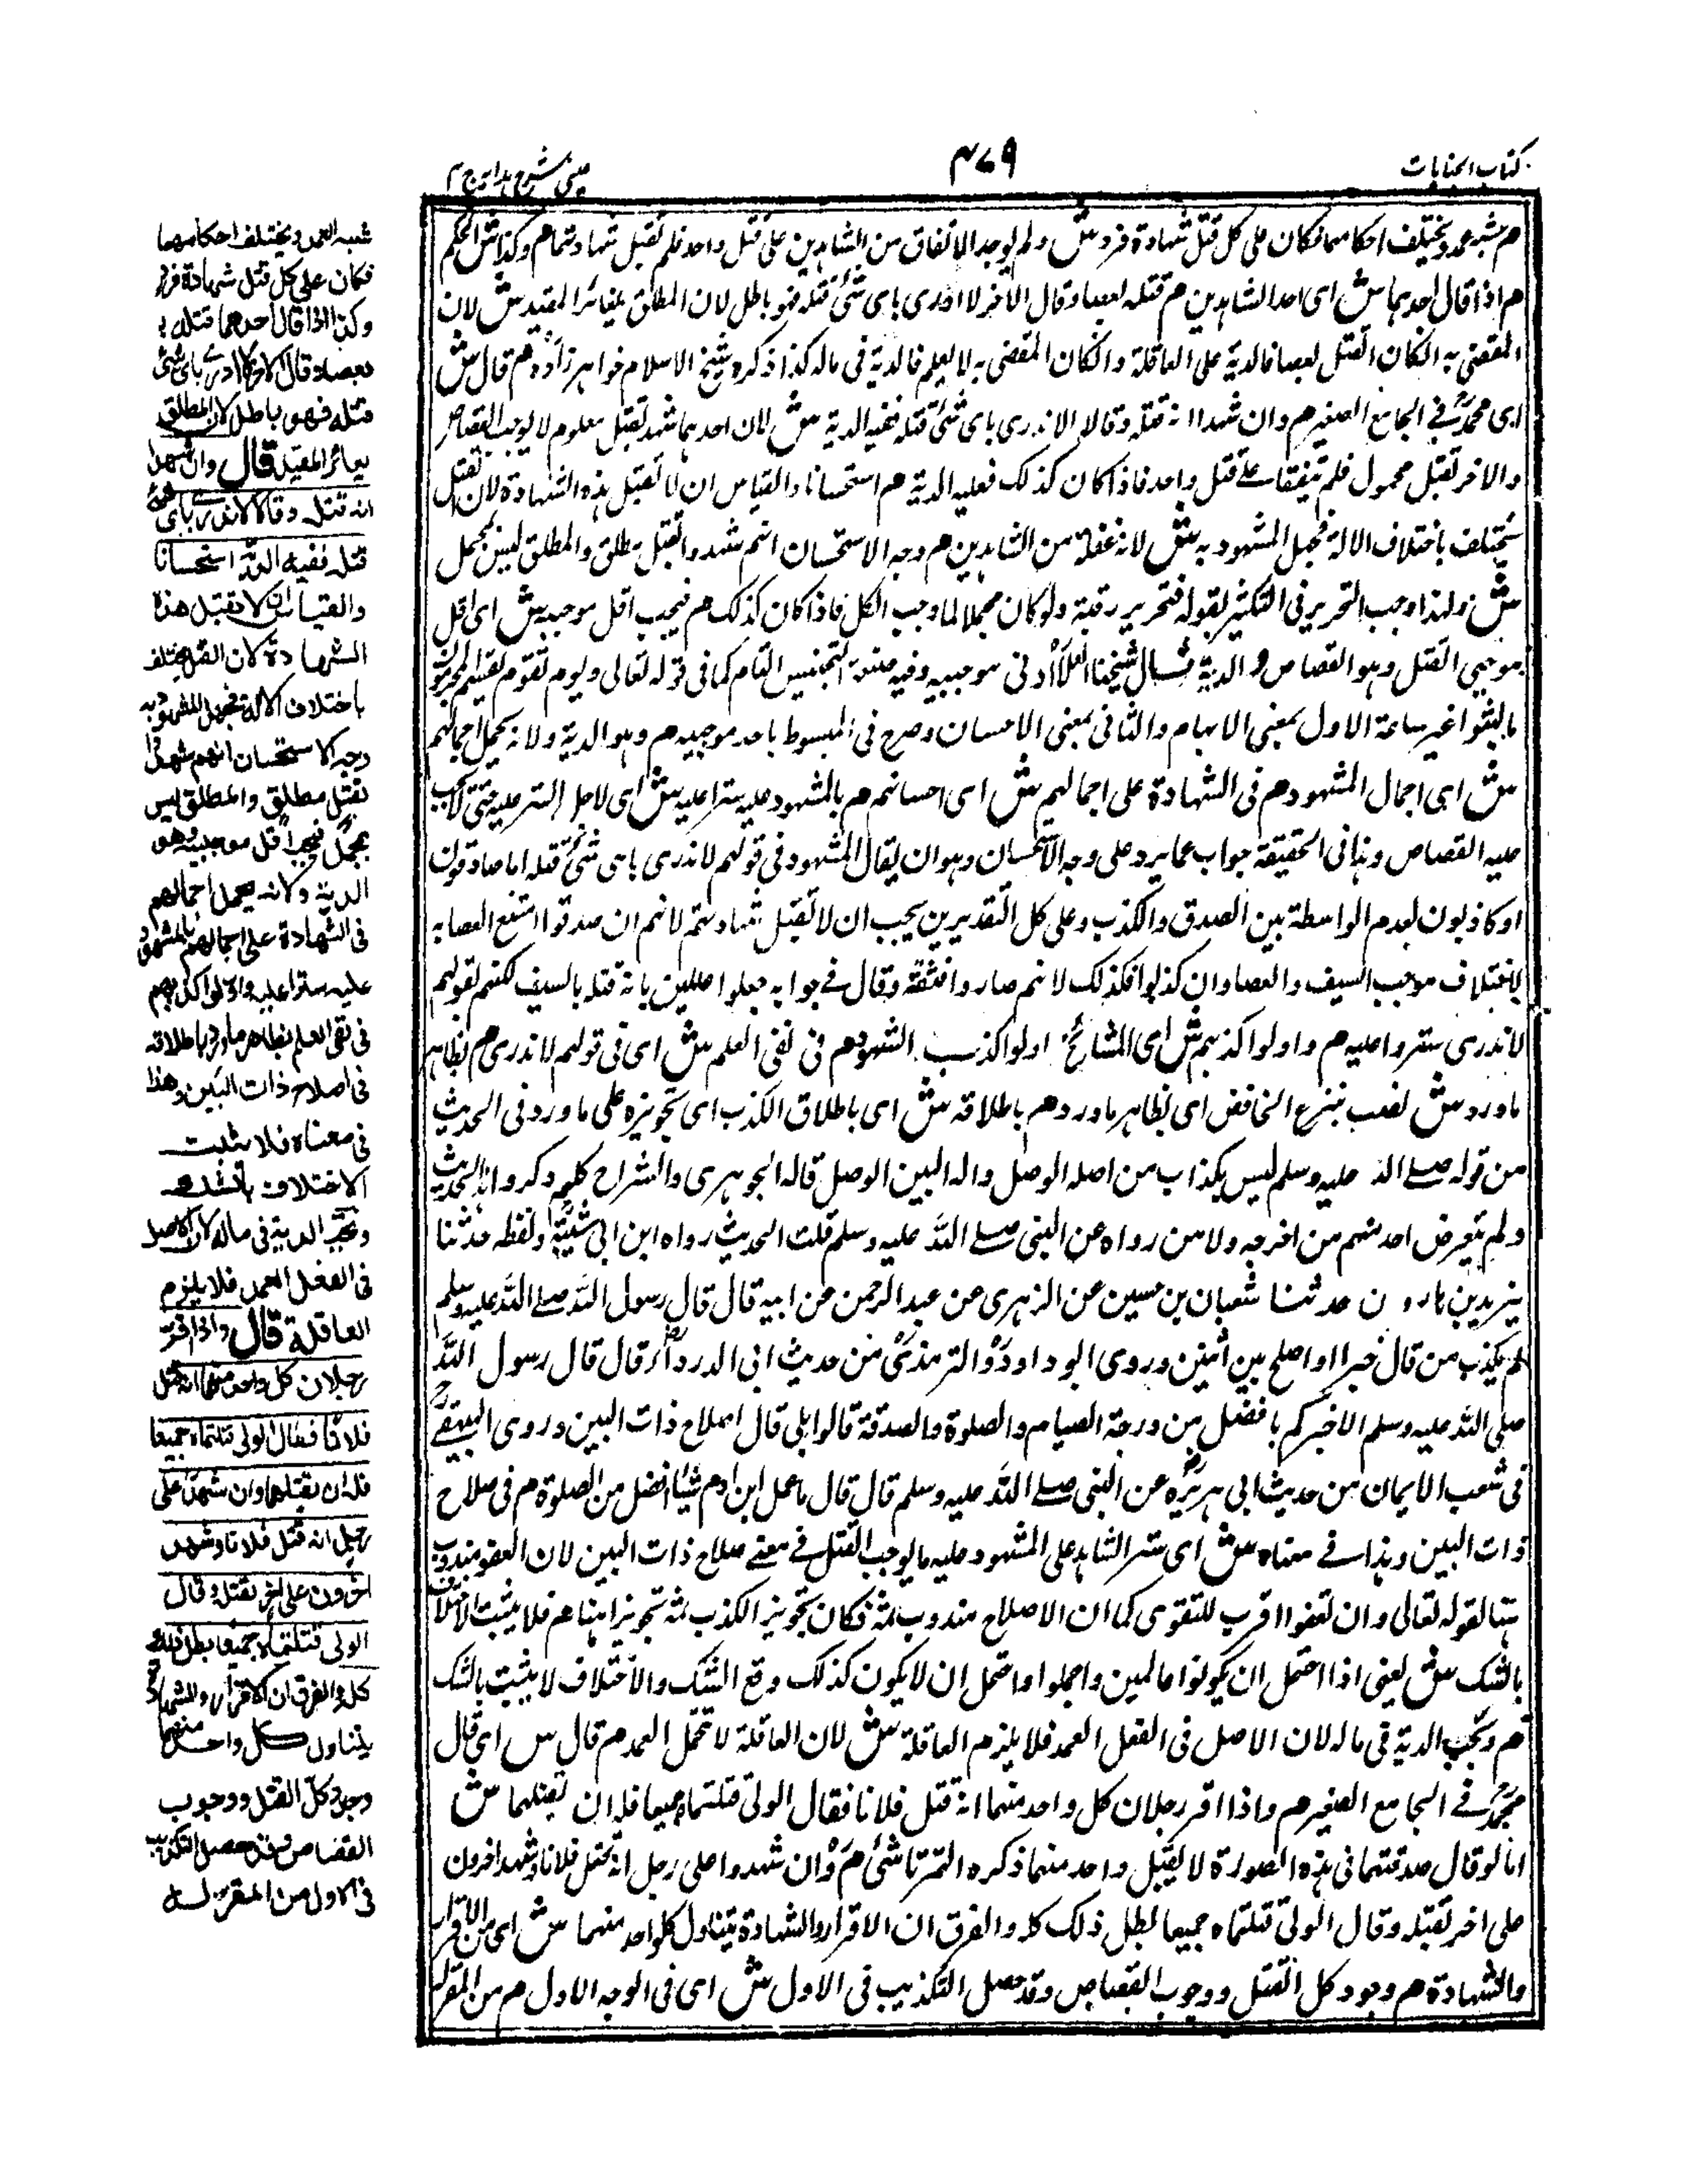 كتاب الجنايات
٤٧٩
عينى شرح هدايه ج ٤
هم شبه عمد ويختلف احكامهما فكان على كل قتل شهادة فرد ش ولم يوجد الاتفاق من الشاهدين على قتل واحد فلم تقبل شهادتهما هم وكذا ش الحكم
هم اذا قال احدهما ش اى احد الشاهدين هم قتله بعصا وقال الآخر لا ادرى باى شئ قتله فهو باطل لان المطلق يغائر المقيد ش لان
المقضى به ان كان القتل بعصا فالدية على العاقلة وان كان المقضى به لا يعلم فالدية فى ماله كذا ذكره شيخ الاسلام خواهر زاده هم قال ش
اى محمد فى الجامع الصغير هم وان شهدا انه قتله وقالا لا ندرى باى شئ قتله ففيه الدية ش لان احدهما شهد بقتل معلوم لا يوجب القصاص
والاخر بقتل مجهول فلم يتفقا على قتل واحد فاذا كان كذلك فعليه الدية هم استحسانا والقياس ان لا تقبل هذه الشهادة لان القتل
يختلف باختلاف الالة فجهل المشهود به ش لانه غفلة من الشاهدين هم وجه الاستحسان انهم شهدوا بقتل مطلق والمطلق ليس بمجمل
ش ولهذا وجب التحرير فى التكفير بقوله فتحرير رقبة ولو كان مجملا لما وجب الكل فاذا كان كذلك هم فيجب اقل موجبيه ش اى اقل
موجبى القتل وهو القصاص والدية قال شيخنا العلاء فى موجبيه وفيه صنعة التجنيس التام كما فى قوله تعالى ويوم تقوم الساعة يقسم المجرمون
ما لبثوا غير ساعة الاول بمعنى الابهام والثانى بمعنى الاحسان وصرح فى المبسوط باحد موجبيه هم وهو الدية ولانه يحمل اجمالهم
ش اى اجمال المشهود هم فى الشهادة على اجمالهم ش اى احسانهم هم بالمشهود عليه سترا عليه ش اى لاجل الستر عليه حتى لا يجب
عليه القصاص وهذا فى الحقيقة جواب عما يرد على وجه الاستحسان وهو ان يقال الشهود فى قولهم لا ندرى باى شئ قتله اما صادقون
او كاذبون لعدم الواسطة بين الصدق والكذب وعلى كل التقديرين يجب ان لا تقبل شهادتهم لانهم ان صدقوا امتنع القضا به
لاختلاف موجب السيف والعصا وان كذبوا فكذلك لانهم صاروا فسقة وقال فى جوابه جعلوا عالمين بانه قتله بالسيف لكنهم لقولهم
لا ندرى ستروا عليه هم واولوا كذبهم ش اى المشائخ اولوا كذب الشهود هم فى نفى العلم ش اى فى قولهم لا ندرى هم بظاهر
ما ورد ش نصب بنزع الخافض اى بظاهر ما ورد هم باطلاقه ش اى باطلاق الكذب اى تجويزه على ما ورد فى الحديث
من قوله صلى الله عليه وسلم ليس بكذاب من اصله الوصل واله البين الوصل قاله الجوهرى والشراح كلهم ذكروا هذا الحديث
ولم يتعرض احد منهم من اخرجه ولا من رواه عن النبى صلى الله عليه وسلم قلت الحديث رواه ابن ابى شيبة ولفظه حدثنا
يزيد بن هارون حدثنا شعبان بن حسين عن الزهرى عن عبد الرحمن عن ابيه قال قال رسول الله صلى الله عليه وسلم
لم يكذب من قال خيرا او اصلح بين اثنين وروى ابو داود والترمذى من حديث ابى الدرداء قال قال رسول الله
صلى الله عليه وسلم الا اخبركم بافضل من درجة الصيام والصلوة والصدقة قالوا بلى قال اصلاح ذات البين وروى البيهقى
فى شعب الايمان من حديث ابى هريرة عن النبى صلى الله عليه وسلم قال قال ما عمل ابن ادم شيئا افضل من الصلوة هم فى صلاح
ذات البين وهذا فى معناه ش اى ستر الشاهد على المشهود عليه ما يوجب القتل فى معنى صلاح ذات البين لان العفو مندوب
هنا لقوله تعالى وان تعفوا اقرب للتقوى كما ان الاصلاح مندوب ثمه فكان تجويز الكذب ثمه تجويزا هنا هم فلا يثبت الاختلاف
بالشك ش يعنى اذا احتمل ان يكونوا عالمين واجملوا واحتمل ان لا يكون كذلك وقع الشك والاختلاف لا يثبت بالشك
هم وتجب الدية فى ماله لان الاصل فى الفعل العمد فلا يلزم العاقلة ش لان العاقلة لا تتحمل العمد هم قال ش اى قال
محمد فى الجامع الصغير هم واذا اقر رجلان كل واحد منهما انه قتل فلانا فقال الولى قتلتماه جميعا فله ان يقتلهما ش
اما لو قال صدقتهما فى هذه الصورة لا يقتل واحد منهما ذكره التمرتاشى هم وان شهدوا على رجل انه قتل فلانا وشهد اخرون
على اخر بقتله وقال الولى قتلتماه جميعا بطل ذلك كله والفرق ان الاقرار والشهادة يتناول كل واحد منهما ش اى من الاقرار
والشهادة هم وجود كل القتل ووجوب القصاص وقد حصل التكذيب فى الاول ش اى فى الوجه الاول هم من المقر له
شبه العمد ويختلف احكامهما
فكان على كل قتل شهادة فرد
وكذا اذا قال احدهما قتله
بعصا وقال الاخر لا ادرى باى شئ
قتله فهو باطل لان المطلق
يغائر المقيد قال وان شهدا
انه قتله وقالا لا ندرى باى شئ
قتله ففيه الدية استحسانا
والقياس ان لا تقبل هذه
الشهادة لان القتل يختلف
باختلاف الالة فجهل المشهود به
وجه الاستحسان انهم شهدوا
بقتل مطلق والمطلق ليس
بمجمل فيجب اقل موجبيه وهو
الدية ولانه يحمل اجمالهم
فى الشهادة على اجمالهم بالمشهود
عليه سترا عليه واولوا كذبهم
فى نفى العلم بظاهر ما ورد باطلاقه
فى اصلاح ذات البين وهذا
فى معناه فلا يثبت
الاختلاف بالشك
وتجب الدية فى ماله لان الاصل
فى الفعل العمد فلا يلزم
العاقلة قال واذا اقر
رجلان كل واحد منهما انه قتل
فلانا فقال الولى قتلتماه جميعا
فله ان يقتلهما وان شهدوا على
رجل انه قتل فلانا وشهد
اخرون على اخر بقتله وقال
الولى قتلتماه جميعا بطل ذلك
كله والفرق ان الاقرار والشهادة
يتناول كل واحد منهما
وجود كل القتل ووجوب
القصاص وقد حصل التكذيب
فى الاول من المقر له